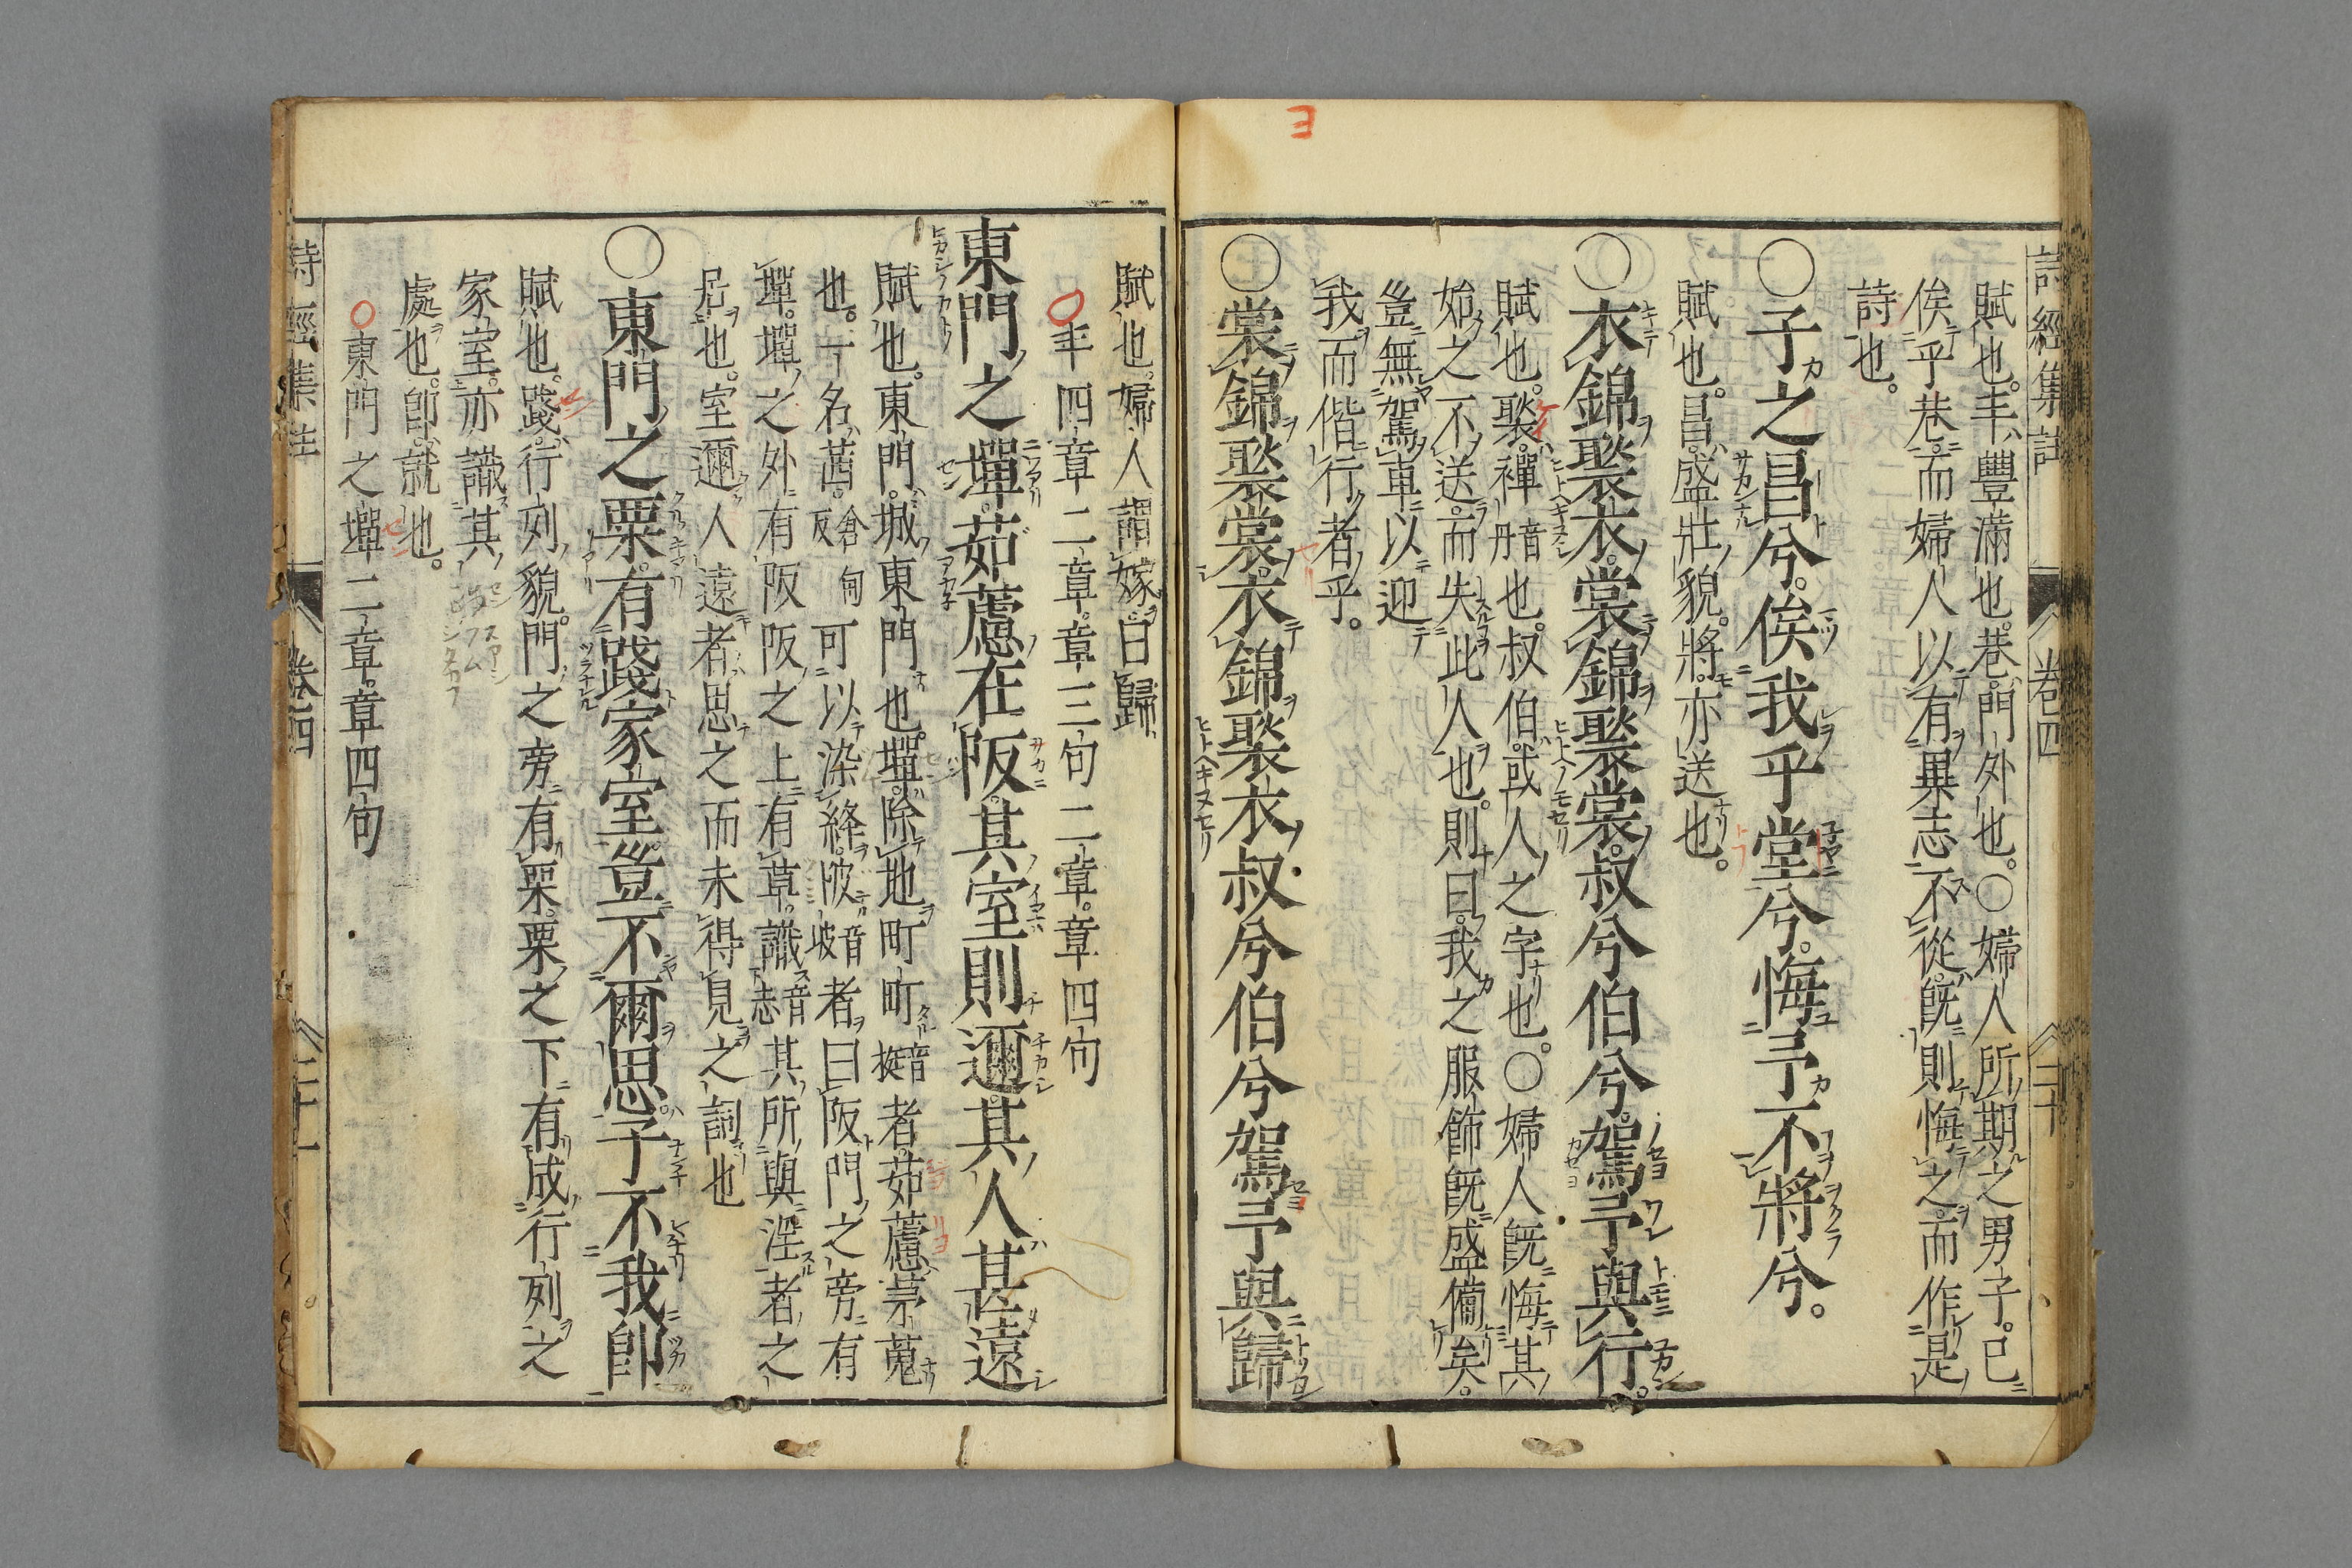 詩經集註 卷四 三十
賦也。丰、豐滿也。巷、門外也。○婦人所期之男子。已
俟乎巷。而婦人以有異志不從。既則悔之。而作是
詩也。
○子之昌兮。俟我乎堂兮。悔予不將兮。
賦也。昌、盛壯貌。將、亦送也。
○衣錦褧衣。裳錦褧裳。叔兮伯兮。駕予與行。
賦也。褧、襌音丹也。叔伯、或人之字也。○婦人既悔其
始之不送。而失此人也。則曰。我之服飾既盛備矣。
豈無駕車以迎
我而偕行者乎。
○裳錦褧裳。衣錦褧衣。叔兮伯兮。駕予與歸
賦也。婦人謂嫁曰歸
○丰四章二章。章三句二章。章四句
東門之墠。茹藘在阪。其室則邇。其人甚遠
賦也。東門。城東門也。墠。除地町町音挺者。茹藘。茅蒐
也。一名茜。倉甸反可以染絳。陂音坡者曰阪。門之旁有
墠。墠之外有阪阪之上有草。識音志其所與淫者之
居也。室邇人遠者思之而未得見之詞也
○東門之栗。有踐家室。豈不爾思。子不我卽
賦也。踐。行列貌。門之旁有栗。栗之下有成行列之
家室。亦識其
處也。卽。就也。
○東門之墠二章。章四句
詩經集註 卷四 三十一